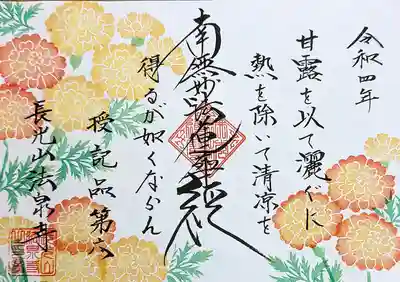 令和四年
甘露を以て灑ぐに
熱を除いて清涼を
南無妙法蓮華経
得るが如くならん
授記品第六
長光山法泉寺